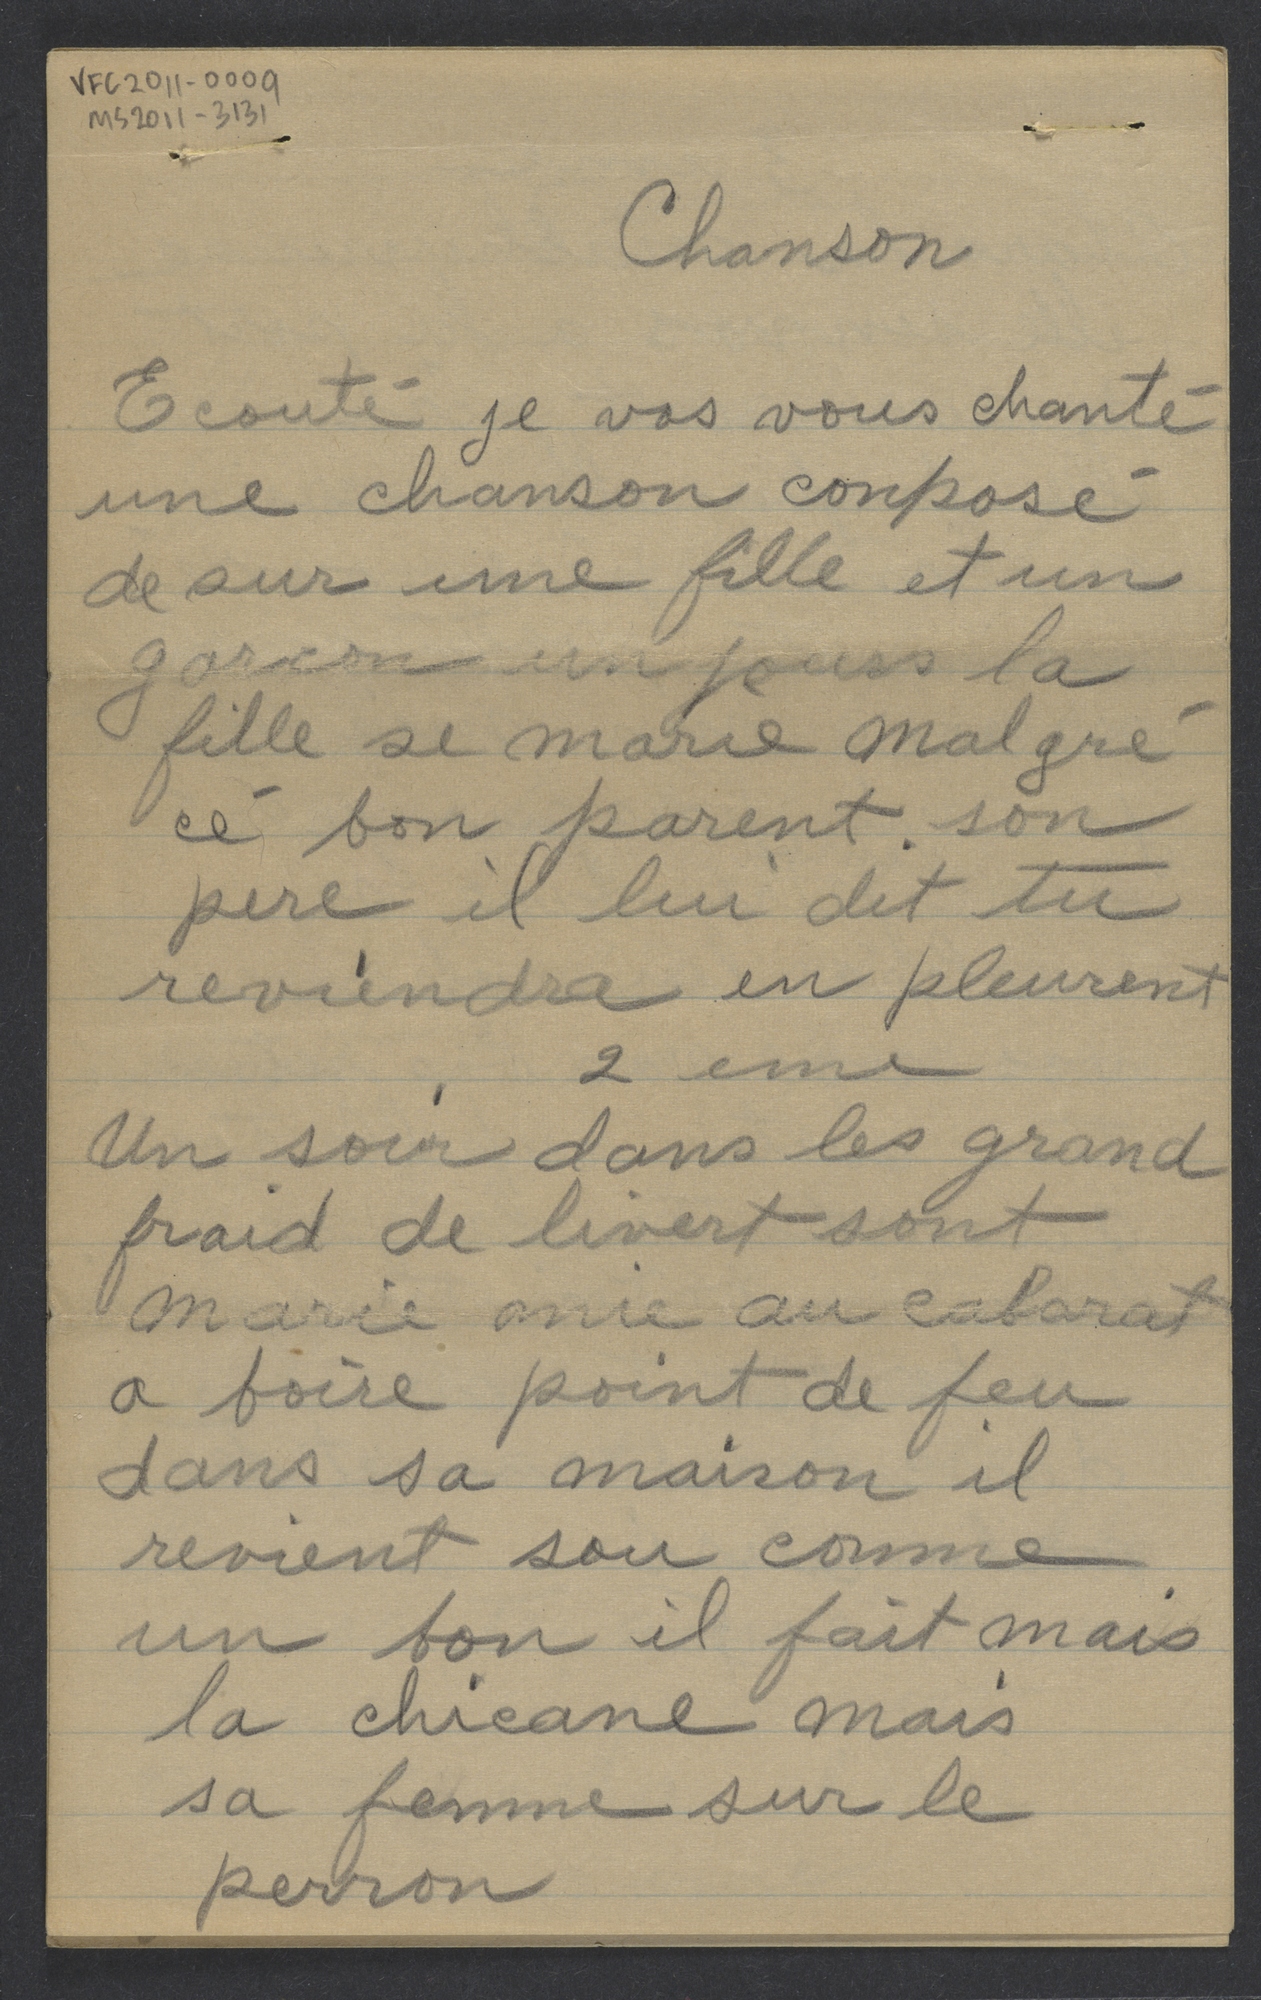 VFC2011-0009
MS2011-3131
Chanson
Ecouté je vas vous chanté
une chanson conposé
de sur une fille et un
garcon un jours la
fille se marie malgré
cé bon parent. son
pere il lui dit tu
reviendra en pleurent
2 eme
Un soir dans les grand
fraid de livert sont
marie mie au cabarat
a boire point de feu
dans sa maison il
revient sou comme
un bon il fait mais
la chicane mais
sa femme sur le
perron